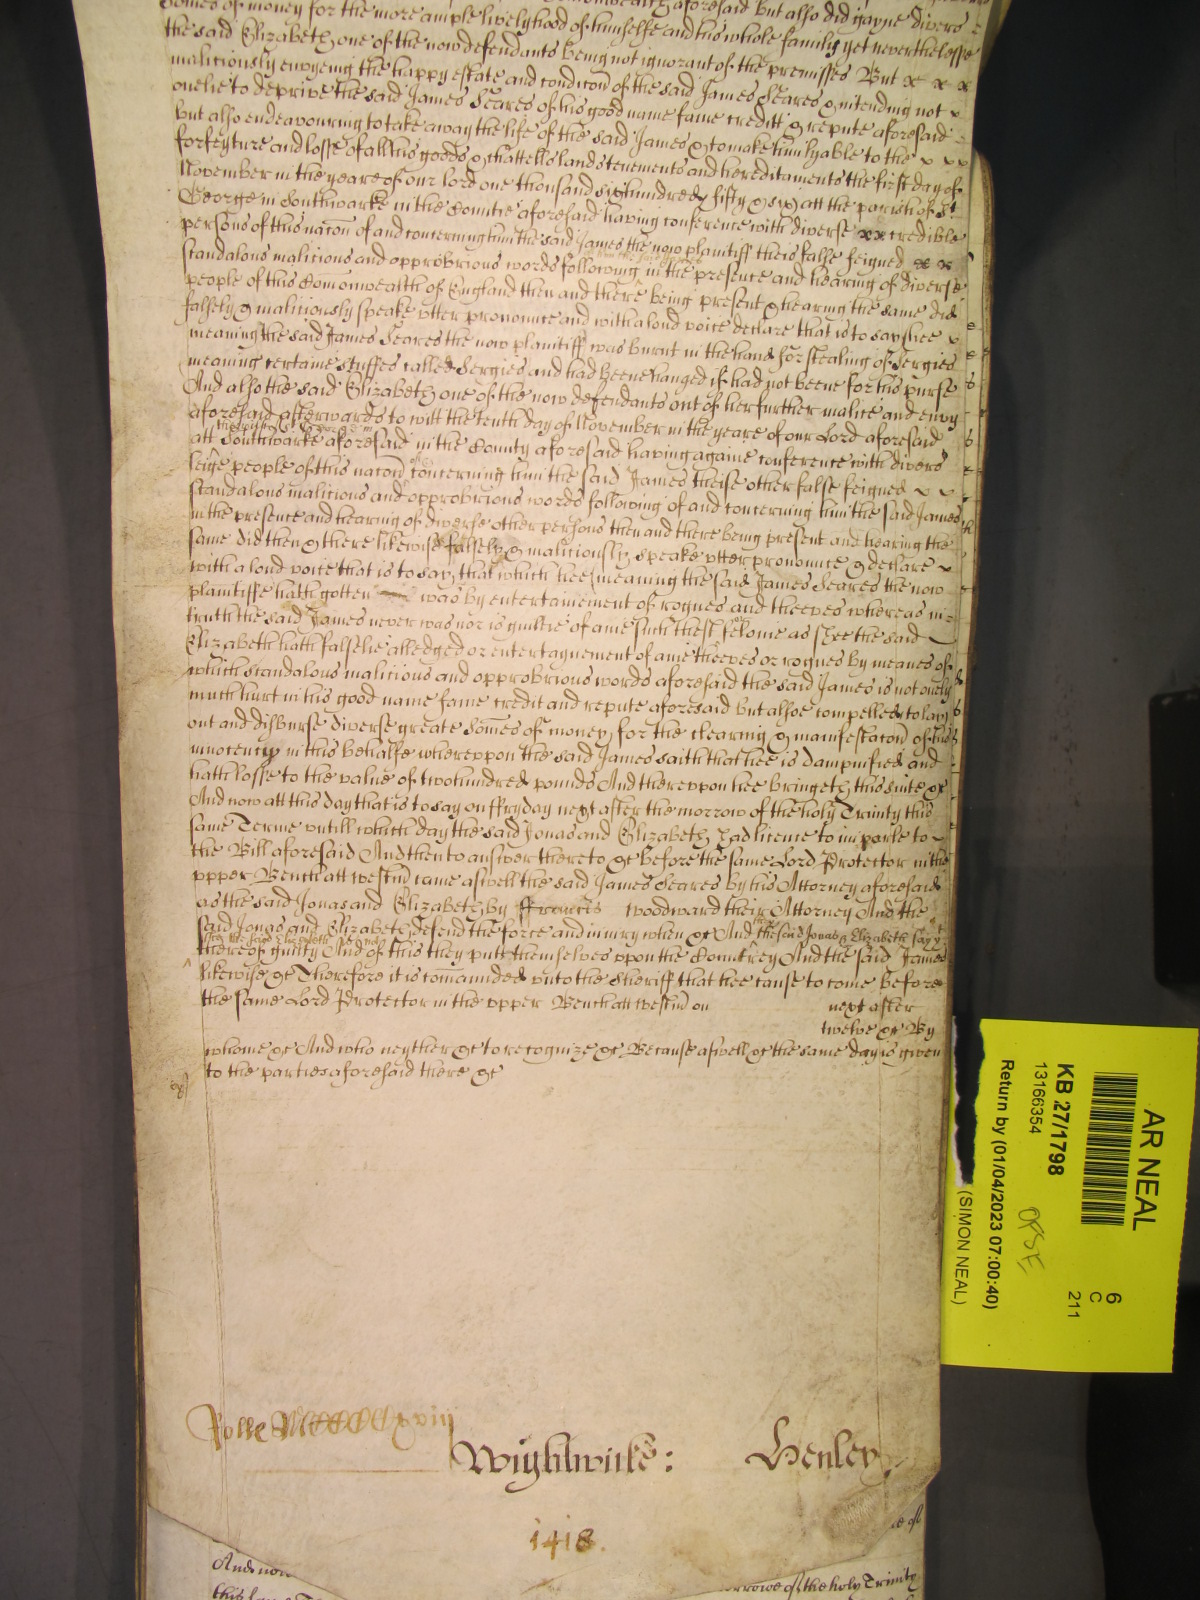 Somes of money for the more ample livelyhood of himselfe and his whole family yet neverthelesse
the said Elizabeth one of the now defendants being not ignorant of the premisses But x x x
maliciously envyeing the happy estate and condicon of the said James Seares & intending not
onelie to deprive the said James Seares of his good name fame creditt & repute aforesaid
but also endeavouring to take away the life of the said James & to make him lyable to the
forfeyture and losse of all his goods & chattells lands tenements and hereditaments the first day of
November in the yeare of our lord one thousand six hundred fifty & six att the parish of St
George in Southwarke in the Countie aforesaid having conference with diverse xx credible
persons of this nacon of and concerning him the said James the now plaintiff theis false feigned x x
scandalous malicious and opprobrious words following in the presence and hearing of diverse
people of this Comonwealth of England then and there being present & hearing the same did
falsely & maliciously speake utter pronounce and with a loud voice declare that is to say hee
meaning the said James Seares the now plaintiff was burnt in the hand for stealing of Sergies
meaning certaine stuffes called Sergies and had beene hanged if had not beene for his purse
And also the said Elizabeth one of the now defendants out of her further malice and envy
aforesaid afterwards to witt the tenth day of November in the yeare of our Lord aforesaid
the parish of St George in
att Southwarke aforesaid in the County aforesaid having againe conference with divers
leige people of this nacon of & concerning him the said James theise other false feigned
scandalous malicious and opprobrious words following of and concerning him the said James
in the presence and hearing of diverse other persons then and there being present and hearing the
same did then & there likewise falsely & maliciously speake utter pronounce & declare
with a loud voice that is to say that which hee meaning the said James Seares the now
plaintiffe hath gotten was by entertainement of rogues and theeves whereas in
truth the said James never was nor is guiltie of anie such theft felonie as shee the said
Elizabeth hath falselie alledged or entertaynement of anie theeves or rogues by meanes of
which scandalous malicious and opprobrious words aforesaid the said James is not onely
much hurt in his good name fame credit and repute aforesaid but alsoe compelled to lay
out and disburse diverse greate Somes of money for the clearing & manifestacon of his
innocency in this behalfe whereupon the said James saith that hee is dampnified and
hath losse to the value of two hundred pounds And thereupon hee bringeth this suite &c
And now att this day that is to say on ffryday next after the morrow of the holy Trinity this
same Terme untill which day the said Jonas and Elizabeth had licence to imparle to
the Bill aforesaid And then to answer thereto &c before the same Lord Protector in the
upper Bench att westm came aswell the said James Seares by his Attorney aforesaid
as the said Jonas and Elizabeth by ffrancis Woodward their Attorney And the
said Jonas and Elizabeth defend the force and iniury when &c And the said Jonas & Elizabeth say
that the said Elizabeth is not
thereof guilty And of this they putt themselves upon the Countrey And the said James
likewise &c Therefore it is comanded unto the Sheriff that hee cause to come before
the same Lord Protector in the upper Bench att westm on next after
twelve &c By
whome &c And who neyther &c to recognize &c Because aswell &c the same day is given
to the parties aforesaid there &c
Wightwicke: Henley
1418.
And now
morrowe of the holy Trinity
AR NEAL
6
C
211
KB 27/1798
13166354
Return by (01/04/2023 07:00:40)
(SIMON NEAL)